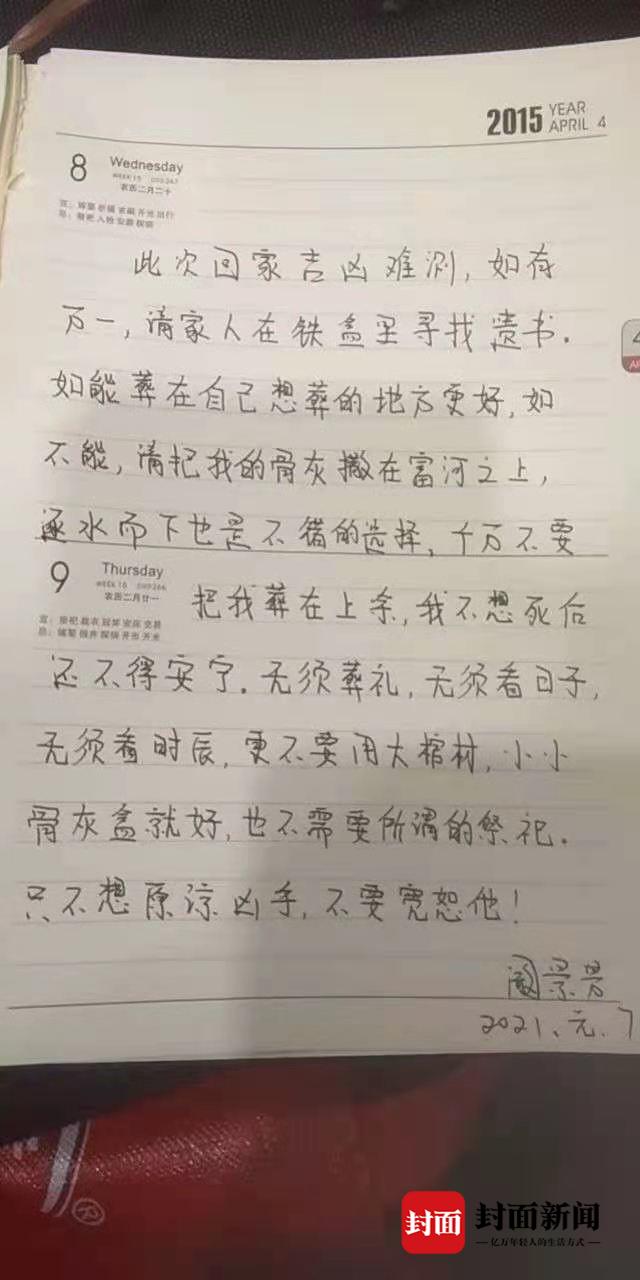 2015 YEAR
APRIL 4
8 Wednesday
农历二月二十
此次回家吉凶难测,如有
万一,请家人在铁盒里寻找遗书.
如能葬在自己想葬的地方更好,如
不能,请把我的骨灰撒在富河之上,
逐水而下也是不错的选择,千万不要
9 Thursday
农历二月廿一
把我葬在上余,我不想死后
还不得安宁.无须葬礼,无须看日子,
无须看时辰,更不要用大棺材,小小
骨灰盒就好,也不需要所谓的祭祀.
只不想原谅凶手,不要宽恕他!
阚景芳
2021.元.7
封面
封面新闻
亿万年轻人的生活方式